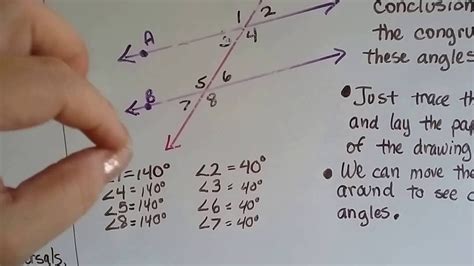 1 2
A 3 4
5 6
B 7 8
∠1=140° ∠2=40°
∠4=140° ∠3=40°
∠5=140° ∠6=40°
∠8=140° ∠7=40°
Conclusion
the congru
these angles
• Just trace th
and lay the pap
of the drawing
• We can move the
around to see
angles.